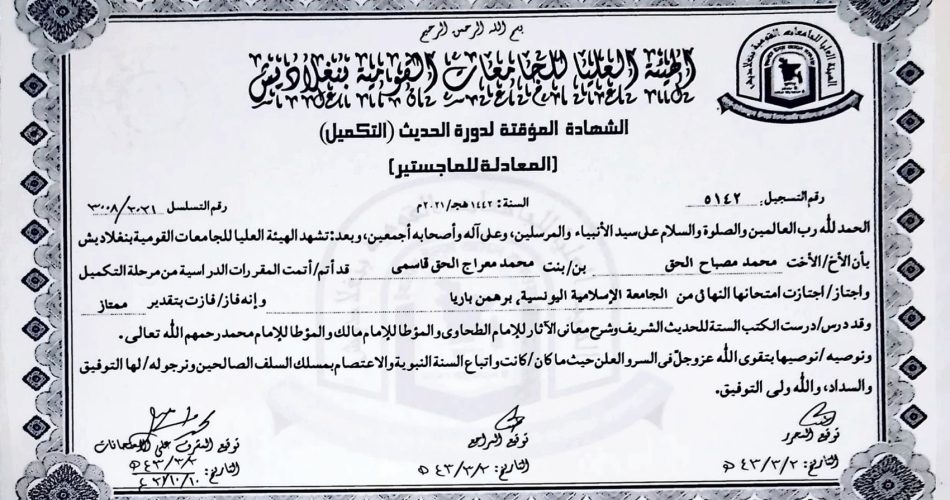 بسم الله الرحمن الرحيم
الهيئة العليا للجامعات القومية بنغلاديش
الشهادة المؤقتة لدورة الحديث (التكميل)
(المعادلة للماجستير)
رقم التسجيل: ٥١٤٢ السنة: ١٤٤٢هج/٢٠٢١م رقم التسلسل
الحمد لله رب العالمين والصلوة والسلام على سيد الأنبياء والمرسلين، وعلى آله وأصحابه أجمعين، وبعد: تشهد الهيئة العليا للجامعات القومية بنغلاديش
بأن الأخ/الأخت محمد مصباح الحق بن/بنت محمد معراج الحق قاسمى قد أتم/أتمت المقررات الدراسية من مرحلة التكميل
واجتاز/اجتازت امتحانها النهائى من الجامعة الإسلامية اليونسية، برهمن باريا وإنه فاز/فازت بتقدير ممتاز
وقد درس/درست الكتب الستة للحديث الشريف وشرح معانى الآثار للإمام الطحاوى والمؤطا للإمام مالك والمؤطا للإمام محمد رحمهم الله تعالى.
ونوصيه/نوصيها بتقوى الله عز وجل فى السر والعلن حيث ما كان/كانت واتباع السنة النبوية والاعتصام بمسلك السلف الصالحين ونرجو له/لها التوفيق
والسداد، والله ولى التوفيق.
توقيع المحرر توقيع المراجع توقيع المشرف على الامتحانات
التاريخ: ٤٣/٣/٢ه التاريخ: ٤٣/٣/٢ه التاريخ: ٤٣/٣/٢ه